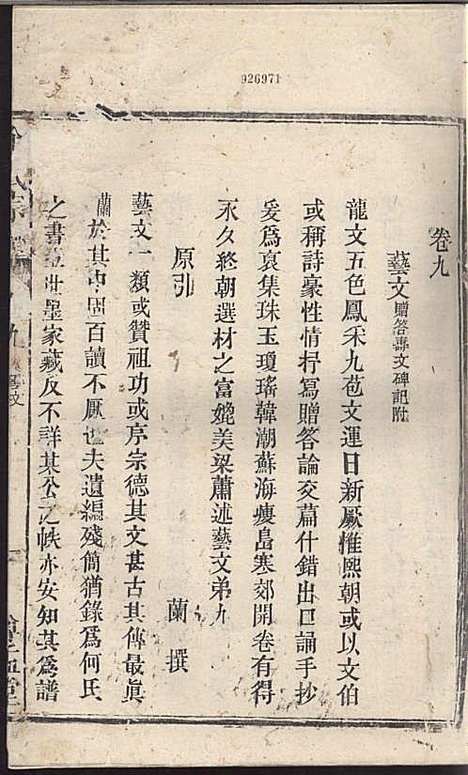 926971
卷九
藝文贈答壽文碑記附
龍文五色鳳采九苞文運日新厥惟熙朝或以文伯
或稱詩豪性情抒寫贈答論交篇什錯出口誦手抄
爰為裒集珠玉瓊瑤韓潮蘇海瘦島寒郊開卷有得
永久終朝選材之富媲美梁蕭述藝文弟九
原引
蘭撰
藝文一類或贊祖功或序宗德其文甚古其傳最眞
蘭於其中固百讀不厭也夫遺編殘簡猶錄為何氏
之書五世墨家藏反不詳某公之帙亦安知其為譜